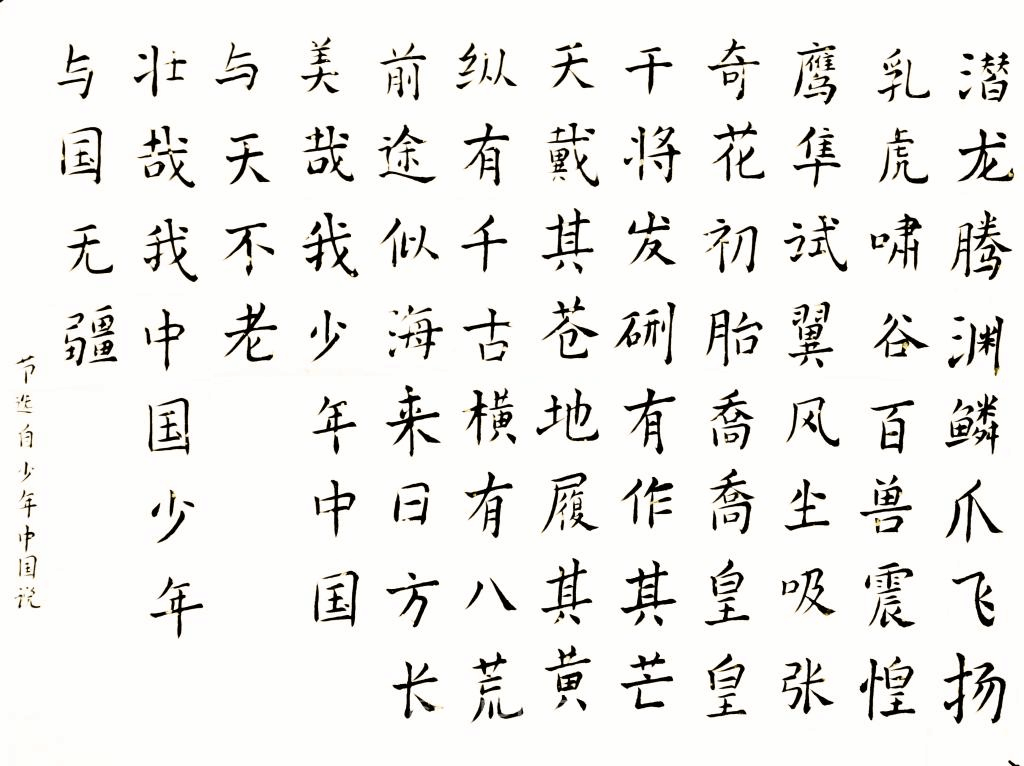 潜龙腾渊鳞爪飞扬
乳虎啸谷百兽震惶
鹰隼试翼风尘吸张
奇花初胎喬喬皇皇
干将发硎有作其芒
天戴其苍地履其黄
纵有千古横有八荒
前途似海来日方长
美哉我少年中国
与天不老
壮哉我中国少年
与国无疆
节选自少年中国说